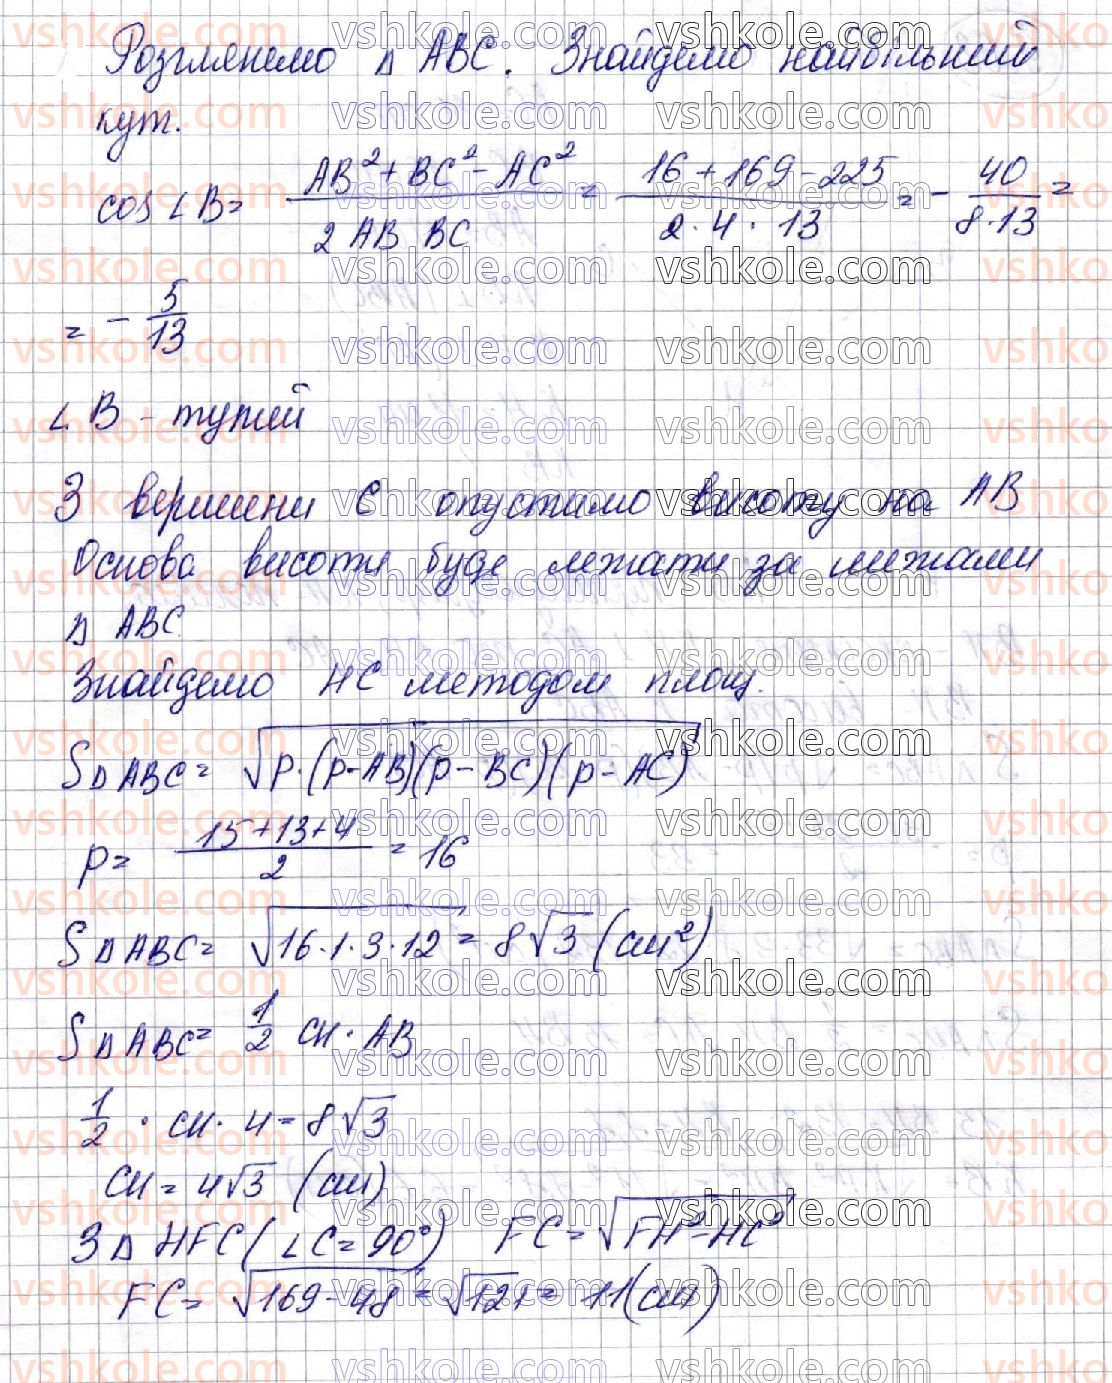 Розглянемо △ ABC. Знайдемо найбільший
кут.
cos ∠ B = (AB² + BC² - AC²) / (2 AB BC) = (16 + 169 - 225) / (2 · 4 · 13) = - 40 / (8 · 13) =
= - 5/13
∠ B - тупий
З вершини C опустимо висоту на AB
Основа висоти буде лежати за межами
△ ABC
Знайдемо HC методом площ.
S △ ABC = √(p · (p - AB)(p - BC)(p - AC))
p = (15 + 13 + 4) / 2 = 16
S △ ABC = √(16 · 1 · 3 · 12) = 8√3 (см²)
S △ ABC = 1/2 CH · AB
1/2 · CH · 4 = 8√3
CH = 4√3 (см)
З △ HFC (∠C = 90°) FC = √(FH² - HC²)
FC = √(169 - 48) = √121 = 11 (см)
vshkole.com